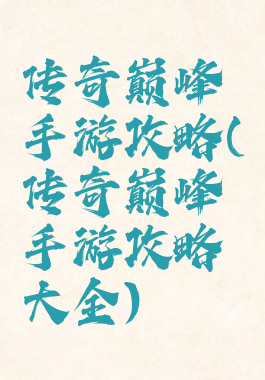 传奇巅峰
手游攻略(
传奇巅峰
手游攻略
大全)